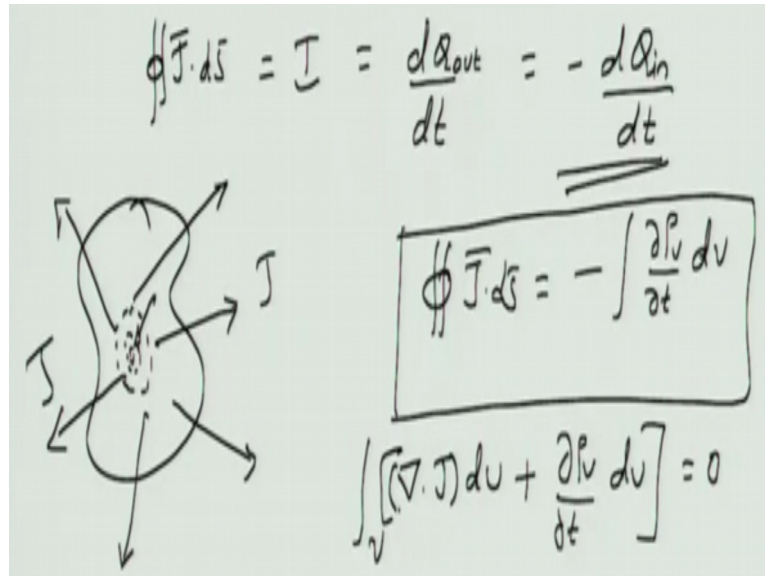 ∯ J̄·ds̄ = I = dQout/dt = - dQin/dt
J
J
∯ J̄·ds̄ = - ∫ ∂ρv/∂t dv
∫v [(∇·J) dv + ∂ρv/∂t dv] = 0